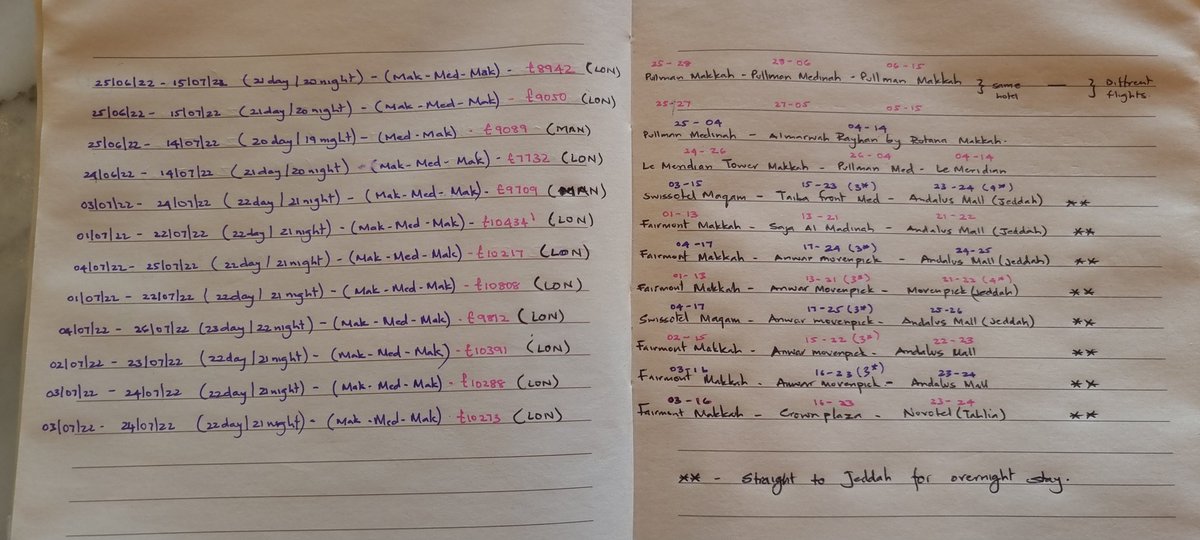 25/06/22 - 15/07/22 (21 day / 20 night) - (Mak - Med - Mak) - £8942 (LON)
25/06/22 - 15/07/22 (21 day / 20 night) - (Mak - Med - Mak) - £9050 (LON)
25/06/22 - 14/07/22 (20 day / 19 night) - (Med - Mak) - £9089 (MAN)
24/06/22 - 14/07/22 (21 day / 20 night) - (Mak - Med - Mak) - £7732 (LON)
03/07/22 - 24/07/22 (22 day / 21 night) - (Mak - Med - Mak) - £9709 (MAN)
01/07/22 - 22/07/22 (22 day / 21 night) - (Mak - Med - Mak) - £10434 (LON)
04/07/22 - 25/07/22 (22 day / 21 night) - (Mak - Med - Mak) - £10217 (LON)
01/07/22 - 22/07/22 (22 day / 21 night) - (Mak - Med - Mak) - £10808 (LON)
04/07/22 - 26/07/22 (23 day / 22 night) - (Mak - Med - Mak) - £9812 (LON)
02/07/22 - 23/07/22 (22 day / 21 night) - (Mak - Med - Mak) - £10391 (LON)
03/07/22 - 24/07/22 (22 day / 21 night) - (Mak - Med - Mak) - £10288 (LON)
03/07/22 - 24/07/22 (22 day / 21 night) - (Mak - Med - Mak) - £10273 (LON)
25 - 28 28 - 06 06 - 15
Pullman Makkah - Pullman Medinah - Pullman Makkah } same hotel — } Different flights.
25 - 27 27 - 05 05 - 15
25 - 04 04 - 14
Pullman Medinah - Almarwah Rayhan by Rotana Makkah.
24 - 26 26 - 04 04 - 14
Le Meridian Tower Makkah - Pullman Med - Le Meridian
03 - 15 15 - 23 (3*) 23 - 24 (4*)
Swissotel Maqam - Taiba front Med - Andalus Mall (Jeddah) **
01 - 13 13 - 21 21 - 22
Fairmont Makkah - Saja Al Madinah - Andalus Mall (Jeddah) **
04 - 17 17 - 24 (3*) 24 - 25
Fairmont Makkah - Anwar movenpick - Andalus Mall (Jeddah) **
01 - 13 13 - 21 (3*) 21 - 22 (4*)
Fairmont Makkah - Anwar Movenpick - Movenpick (Jeddah) **
04 - 17 17 - 25 (3*) 25 - 26
Swissotel Maqam - Anwar movenpick - Andalus Mall (Jeddah) **
02 - 15 15 - 22 (3*) 22 - 23
Fairmont Makkah - Anwar movenpick - Andalus Mall **
03 - 16 16 - 23 (3*) 23 - 24
Fairmont Makkah - Anwar movenpick - Andalus Mall **
03 - 16 16 - 23 23 - 24
Fairmont Makkah - Crown plaza - Novotel (Tahlia) **
** - Straight to Jeddah for overnight stay.